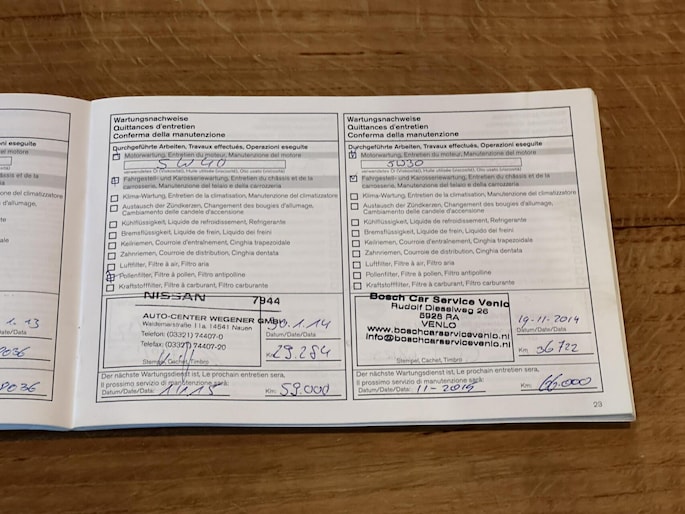 1.13
9036
9036
Wartungsnachweise
Quittances d'entretien
Conferma della manutenzione
Durchgeführte Arbeiten, Travaux effectués, Operazioni eseguite
Motorwartung, Entretien du moteur, Manutenzione del motore
5W40
verwendetes Öl (Viskosität), Huile utilisée (viscosité), Olio usato (viscosità)
Fahrgestell- und Karosseriewartung, Entretien du châssis et de la
carrosserie, Manutenzione del telaio e della carrozzeria
Klima-Wartung, Entretien de la climatisation, Manutenzione del climatizzatore
Austausch der Zündkerzen, Changement des bougies d'allumage,
Cambiamento delle candele d'accensione
Kühlflüssigkeit, Liquide de refroidissement, Refrigerante
Bremsflüssigkeit, Liquide de frein, Liquido dei freini
Keilriemen, Courroie d'entraînement, Cinghia trapezoidale
Zahnriemen, Courroie de distribution, Cinghia dentata
Luftfilter, Filtre à air, Filtro aria
Pollenfilter, Filtre à pollen, Filtro antipolline
Kraftstofffilter, Filtre à carburant, Filtro carburante
NISSAN 7944
AUTO-CENTER WEGENER GMBH
Weidemarstraße 11a, 14641 Nauen
Telefon: (03321) 74407-0
Telefax: (03321) 74407-20
Stempel, Cachet, Timbro
30.1.14
Datum/Date/Data
Km: 29.284
Der nächste Wartungsdienst ist, Le prochain entretien sera,
Il prossimo servizio di manutenzione sarà:
Datum/Date/Data: 11/15 Km: 59.000
Wartungsnachweise
Quittances d'entretien
Conferma della manutenzione
Durchgeführte Arbeiten, Travaux effectués, Operazioni eseguite
Motorwartung, Entretien du moteur, Manutenzione del motore
5W30
verwendetes Öl (Viskosität), Huile utilisée (viscosité), Olio usato (viscosità)
Fahrgestell- und Karosseriewartung, Entretien du châssis et de la
carrosserie, Manutenzione del telaio e della carrozzeria
Klima-Wartung, Entretien de la climatisation, Manutenzione del climatizzatore
Austausch der Zündkerzen, Changement des bougies d'allumage,
Cambiamento delle candele d'accensione
Kühlflüssigkeit, Liquide de refroidissement, Refrigerante
Bremsflüssigkeit, Liquide de frein, Liquido dei freini
Keilriemen, Courroie d'entraînement, Cinghia trapezoidale
Zahnriemen, Courroie de distribution, Cinghia dentata
Luftfilter, Filtre à air, Filtro aria
Pollenfilter, Filtre à pollen, Filtro antipolline
Kraftstofffilter, Filtre à carburant, Filtro carburante
Bosch Car Service Venlo
Rudolf Dieselweg 26
5928 RA
VENLO
www.boschcarservicevenlo.nl
info@boschcarservicevenlo.nl
Stempel, Cachet, Timbro
19-11-2014
Datum/Date/Data
Km: 36722
Der nächste Wartungsdienst ist, Le prochain entretien sera,
Il prossimo servizio di manutenzione sarà:
Datum/Date/Data: 11-2015 Km: 66.000
23